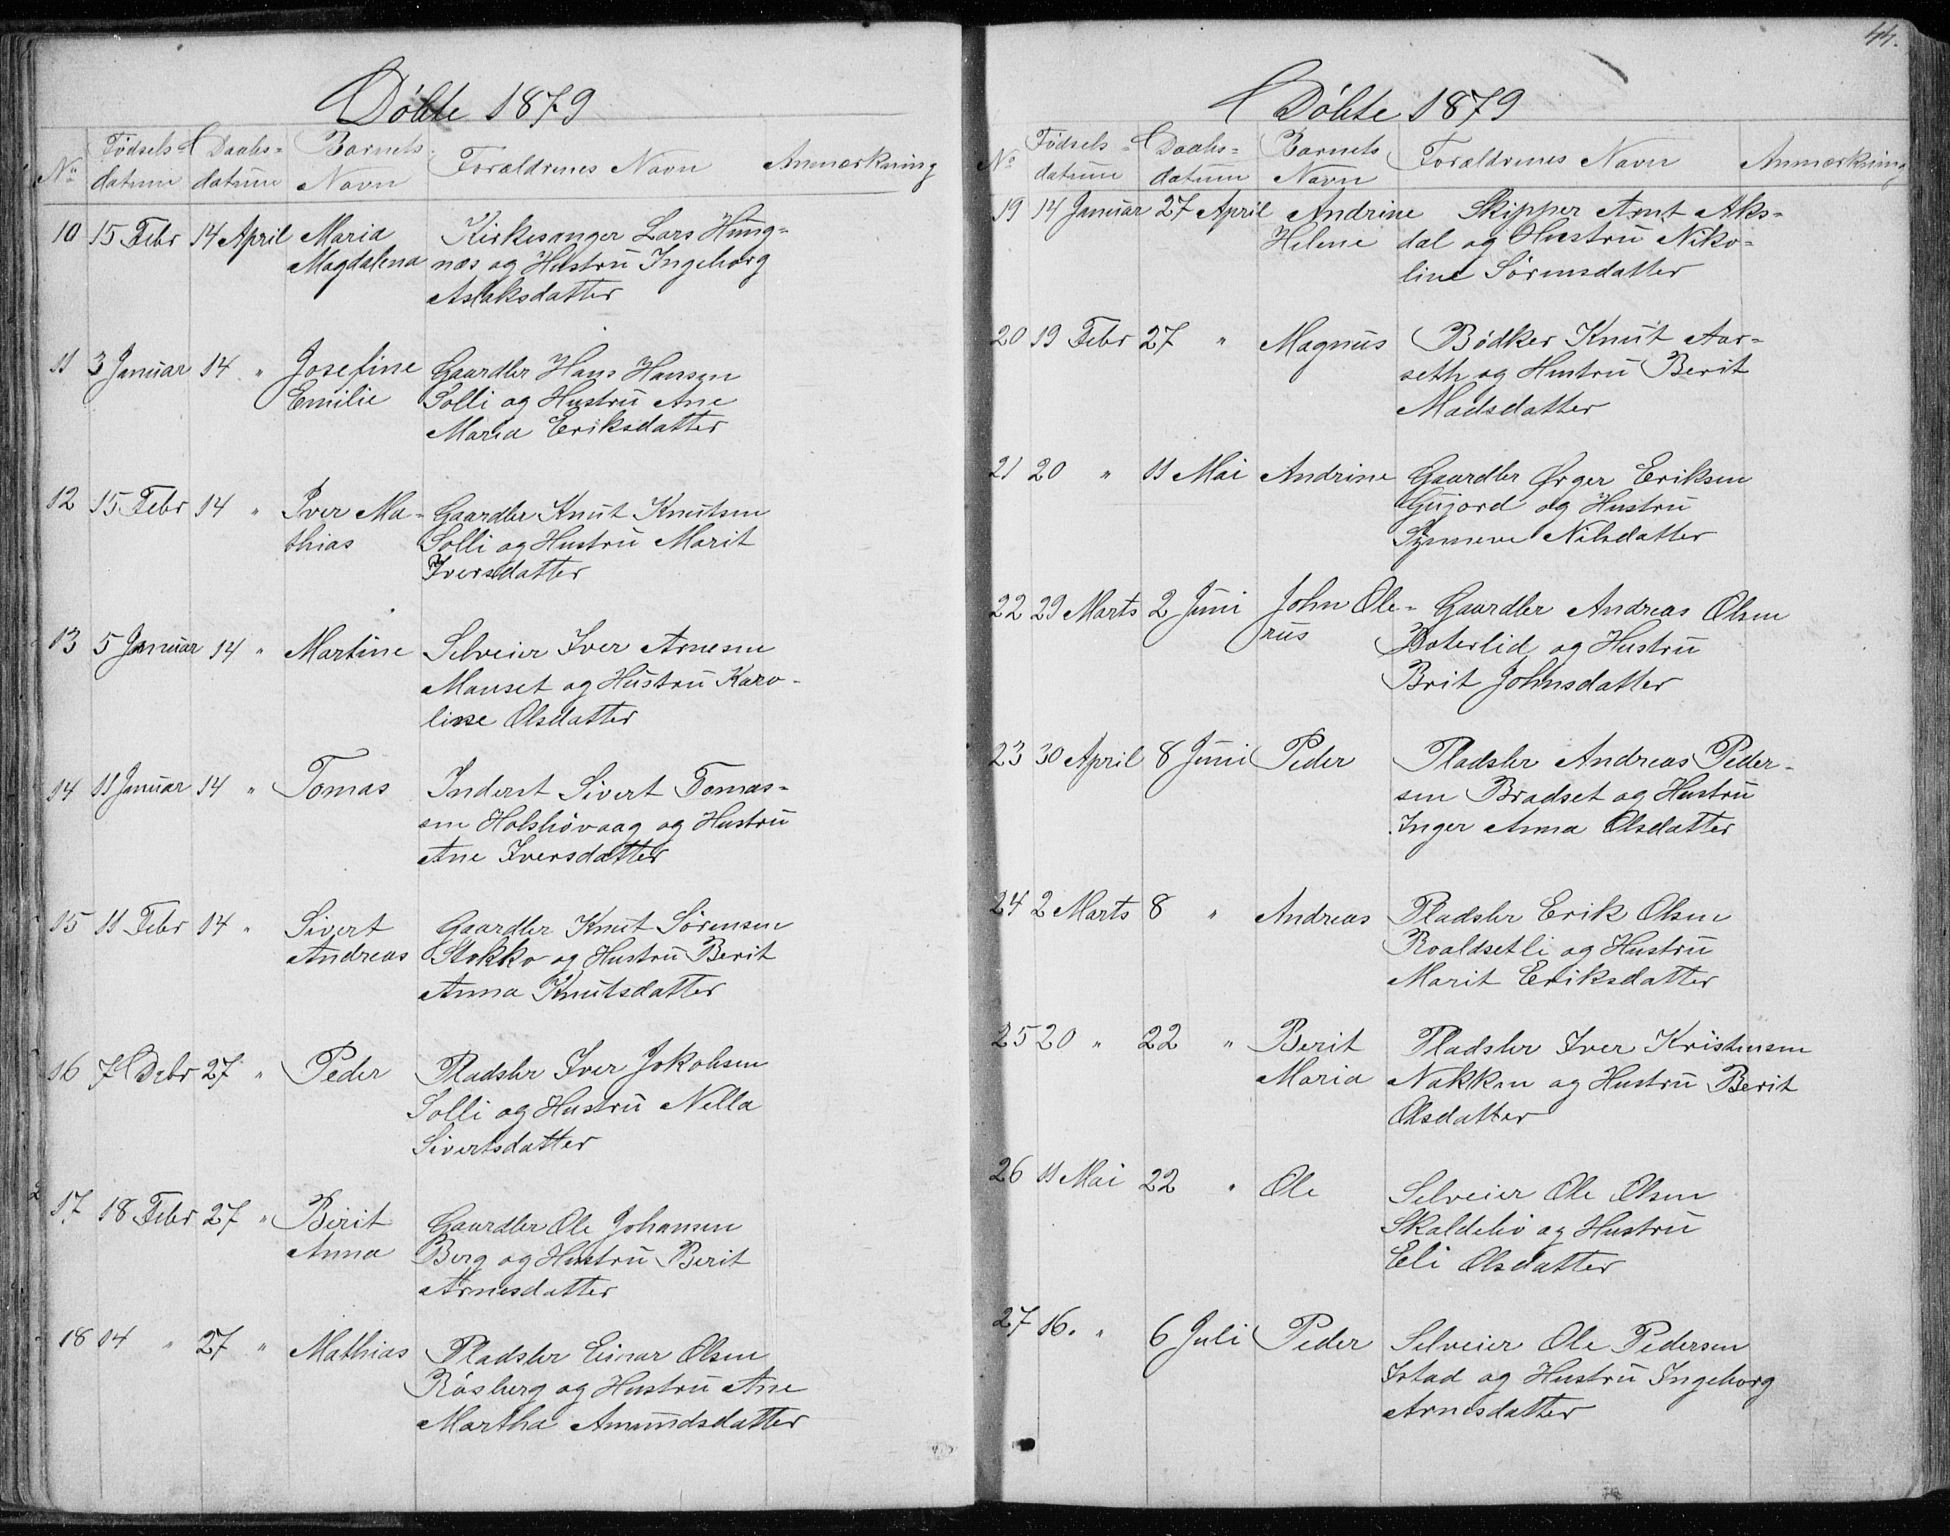 Döbte 1879
No Fødsels= datum Daabs= datum Barnets Navn Forældrenes Navn Anmærkning
10 15 Febr 14 April Maria Kirkesanger Lars Hung=
Magdalena næs og Hustru Ingeborg
Aslaksdatter
11 3 Januar 14 " Josefine Gaardbr Hans Hansen
Emilie Solli og Hustru Ane
Maria Eriksdatter
12 15 Febr 14 " Iver Ma= Gaardbr Knut Knutsen
thias Solli og Hustru Marit
Iversdatter
13 5 Januar 14 " Martine Selveier Iver Arnesen
Mauset og Hustru Karo=
line Olsdatter
14 11 Januar 14 " Tomas Inderst Sivert Tomas=
sen Holshövaag og Hustru
Ane Iversdatter
15 11 Febr 14 " Sivert Gaardbr Knut Sörensen
Andreas Stokko og Hustru Berit
Anna Knutsdatter
16 7 Debr 27 " Peder Pladsbr Iver Jakobsen
Solli og Hustru Nella
Sivertsdatter
17 18 Febr 27 " Berit Gaardbr Ole Johansen
Anna Berg og Hustru Berit
Arnesdatter
18 04 " 27 " Mathias Pladsbr Einar Olsen
Rösberg og Hustru Ane
Martha Amundsdatter
44.
Döbte 1879
No Fødsels= datum Daabs= datum Barnets Navn Forældrenes Navn Anmærkning
19 14 Januar 27 April Andrine Skipper Arnt Aks=
Helene dal og Hustru Niko=
line Sörensdatter
20 19 Febr 27 " Magnus Bödker Knut Aar=
seth og Hustru Berit
Madsdatter
21 20 " 11 Mai Andrine Gaardbr Ørger Eriksen
Gujord og Hustru
Synneve Nilsdatter
22 29 Marts 2 Juni John Ole= Gaardbr Andreas Olsen
rus Boterlid og Hustru
Brit Johnsdatter
23 30 April 8 Juni Peder Pladsbr Andreas Peder=
sen Bradset og Hustru
Inger Anna Olsdatter
24 2 Marts 8 " Andreas Pladsbr Erik Olsen
Roaldsetli og Hustru
Marit Eriksdatter
25 20 " 22 " Berit Pladsbr Iver Kristensen
Maria Nakken og Hustru Berit
Olsdatter
26 11 Mai 22 " Ole Selveier Ole Olsen
Skaldehö og Hustru
Eli Olsdatter
27 16. " 6 Juli Peder Selveier Ole Pedersen
Istad og Hustru Ingeborg
Arnesdatter